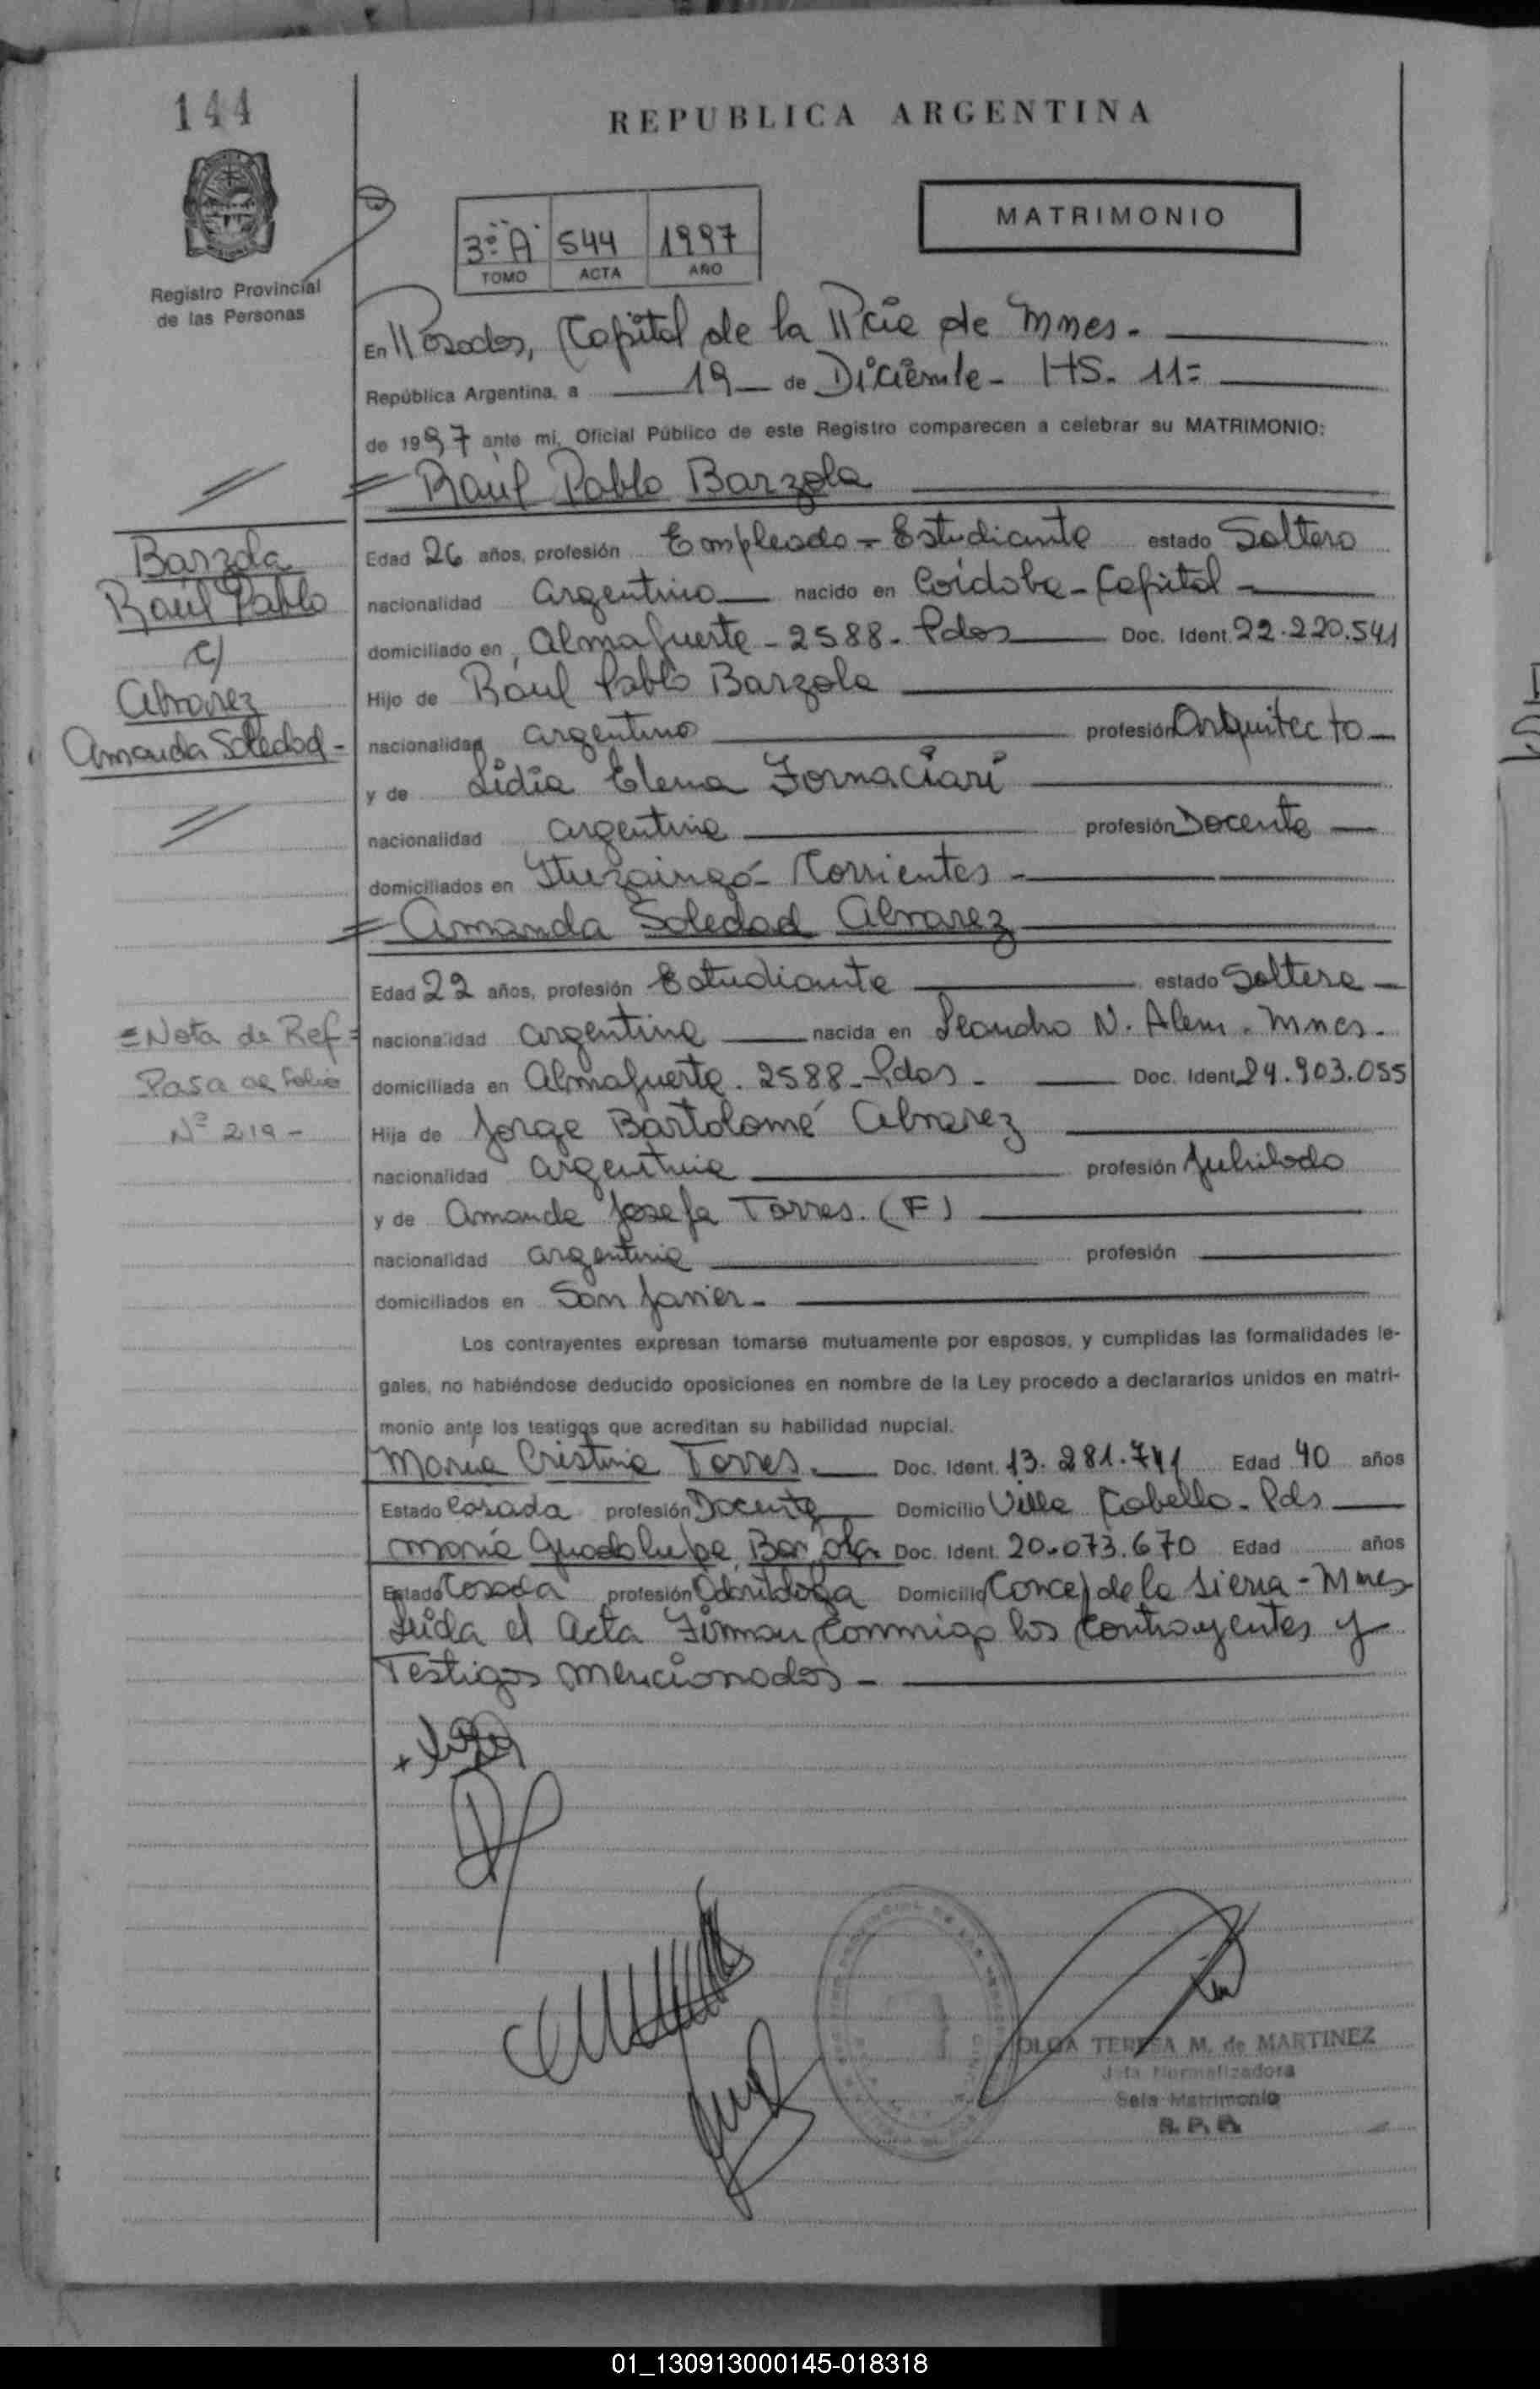 144
REPUBLICA ARGENTINA
MATRIMONIO
3º "A" 544 1997
TOMO ACTA AÑO
Registro Provincial
de las Personas
En Posadas, Capital de la Pcia de Mnes.
República Argentina, a 19 de Diciembre - HS. 11=
de 1997 ante mi, Oficial Público de este Registro comparecen a celebrar su MATRIMONIO:
Raúl Pablo Barzola
Barzola
Raúl Pablo
c/
Alvarez
Amanda Soledad -
Edad 26 años, profesión Empleado - Estudiante estado Soltero
nacionalidad argentino nacido en Córdoba - Capital -
domiciliado en Almafuerte - 2588 - Pdas Doc. Ident. 22.220.541
Hijo de Raul Pablo Barzola
nacionalidad argentino profesión Arquitecto
y de Lidia Elena Fornaciari
nacionalidad argentina profesión Docente
domiciliados en Ituzaingó - Corrientes -
Amanda Soledad Alvarez
Edad 22 años, profesión Estudiante estado Soltera
= Nota de Ref =
Pasa al folio
Nº 219 -
nacionalidad argentina nacida en Leandro N. Alem - Mnes.
domiciliada en Almafuerte. 2588 - Pdas - Doc. Ident. 24.903.055
Hija de Jorge Bartolomé Alvarez
nacionalidad argentina profesión Jubilado
y de Amanda Josefa Torres. (F)
nacionalidad argentina profesión
domiciliados en San Javier -
Los contrayentes expresan tomarse mutuamente por esposos, y cumplidas las formalidades le-
gales, no habiéndose deducido oposiciones en nombre de la Ley procedo a declararlos unidos en matri-
monio ante los testigos que acreditan su habilidad nupcial.
Maria Cristina Torres. Doc. Ident. 13.281.741 Edad 40 años
Estado Casada profesión Docente Domicilio Villa Cabello - Pds
María Guadalupe Doc. Ident. 20.073.670 Edad años
Estado Casada profesión Odontóloga Domicilio Concep de la Sierra - Mnes
Leída el Acta Firman conmigo los contrayentes y
Testigos mencionados -
OLGA TERESA M. de MARTINEZ
Jefa Normalizadora
Sala Matrimonio
R. P. P.
01_130913000145-018318